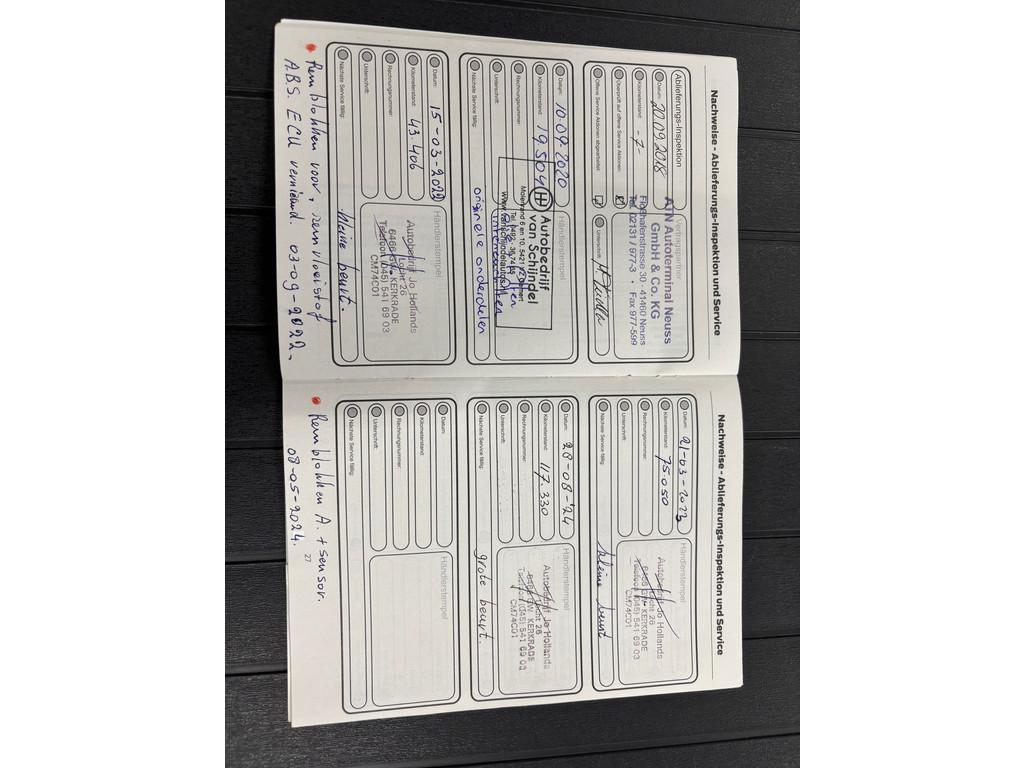 Nachweise - Ablieferungs-Inspektion und Service
Ablieferungs-Inspektion
Vertragspartner
Datum: 20.09.2018
Kilometerstand: -7-
Überprüft auf offene Service Aktionen:
Offene Service Aktionen abgearbeitet:
Unterschrift:
ATN Autoterminal Neuss
GmbH & Co. KG
Floßhafenstrasse 30 · 41460 Neuss
Tel. 02131 / 977-3 · Fax 977-599
Händlerstempel
Datum: 10.09.2020
Kilometerstand: 19504
Rechnungsnummer:
Unterschrift:
Nächste Service fällig:
Autobedrijf
van Schijndel
originele onderdelen
Händlerstempel
Datum: 15-03-2022
Kilometerstand: 43.406
Rechnungsnummer:
Unterschrift:
Nächste Service fällig: kleine beurt.
Autobedrijf Jo Hollands
Locht 26
6466 GW KERKRADE
Telefoon (045) 541 69 03
CM74C01
Remblokken voor, remvloeistof
A.B.S. ECU vernieuwd. 03-09-2022.
Nachweise - Ablieferungs-Inspektion und Service
Händlerstempel
Datum: 21-03-2023
Kilometerstand: 75.050
Rechnungsnummer:
Unterschrift:
Nächste Service fällig: kleine beurt
Autobedrijf Jo Hollands
Locht 26
6466 GW KERKRADE
Telefoon (045) 541 69 03
CM74C01
Händlerstempel
Datum: 28-08-'24
Kilometerstand: 117.330
Rechnungsnummer:
Unterschrift:
Nächste Service fällig: grote beurt.
Autobedrijf Jo Hollands
Locht 26
6466 GW KERKRADE
Telefoon (045) 541 69 03
CM74C01
Händlerstempel
Datum:
Kilometerstand:
Rechnungsnummer:
Unterschrift:
Nächste Service fällig:
Remblokken A. + sensor.
08-05-2024.
27